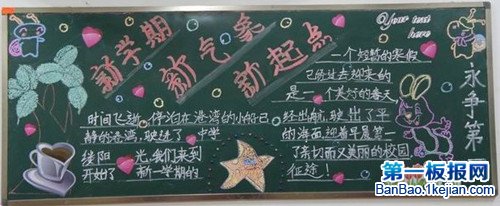 新学期
新气象
新起点
Your text
here
一个短暂的寒假
已经过去,迎来的
是一个美好的春天
时间飞逝,停泊在港湾的小船已
静的港湾,驶进了中学
绕阳光,我们来到
开始了新一学期的
经启航,驶出了平
的海面,迎着早晨第一
了亲切而又美丽的校园
征途!
永争第一
第一板报网
BanBao.1kejian.com